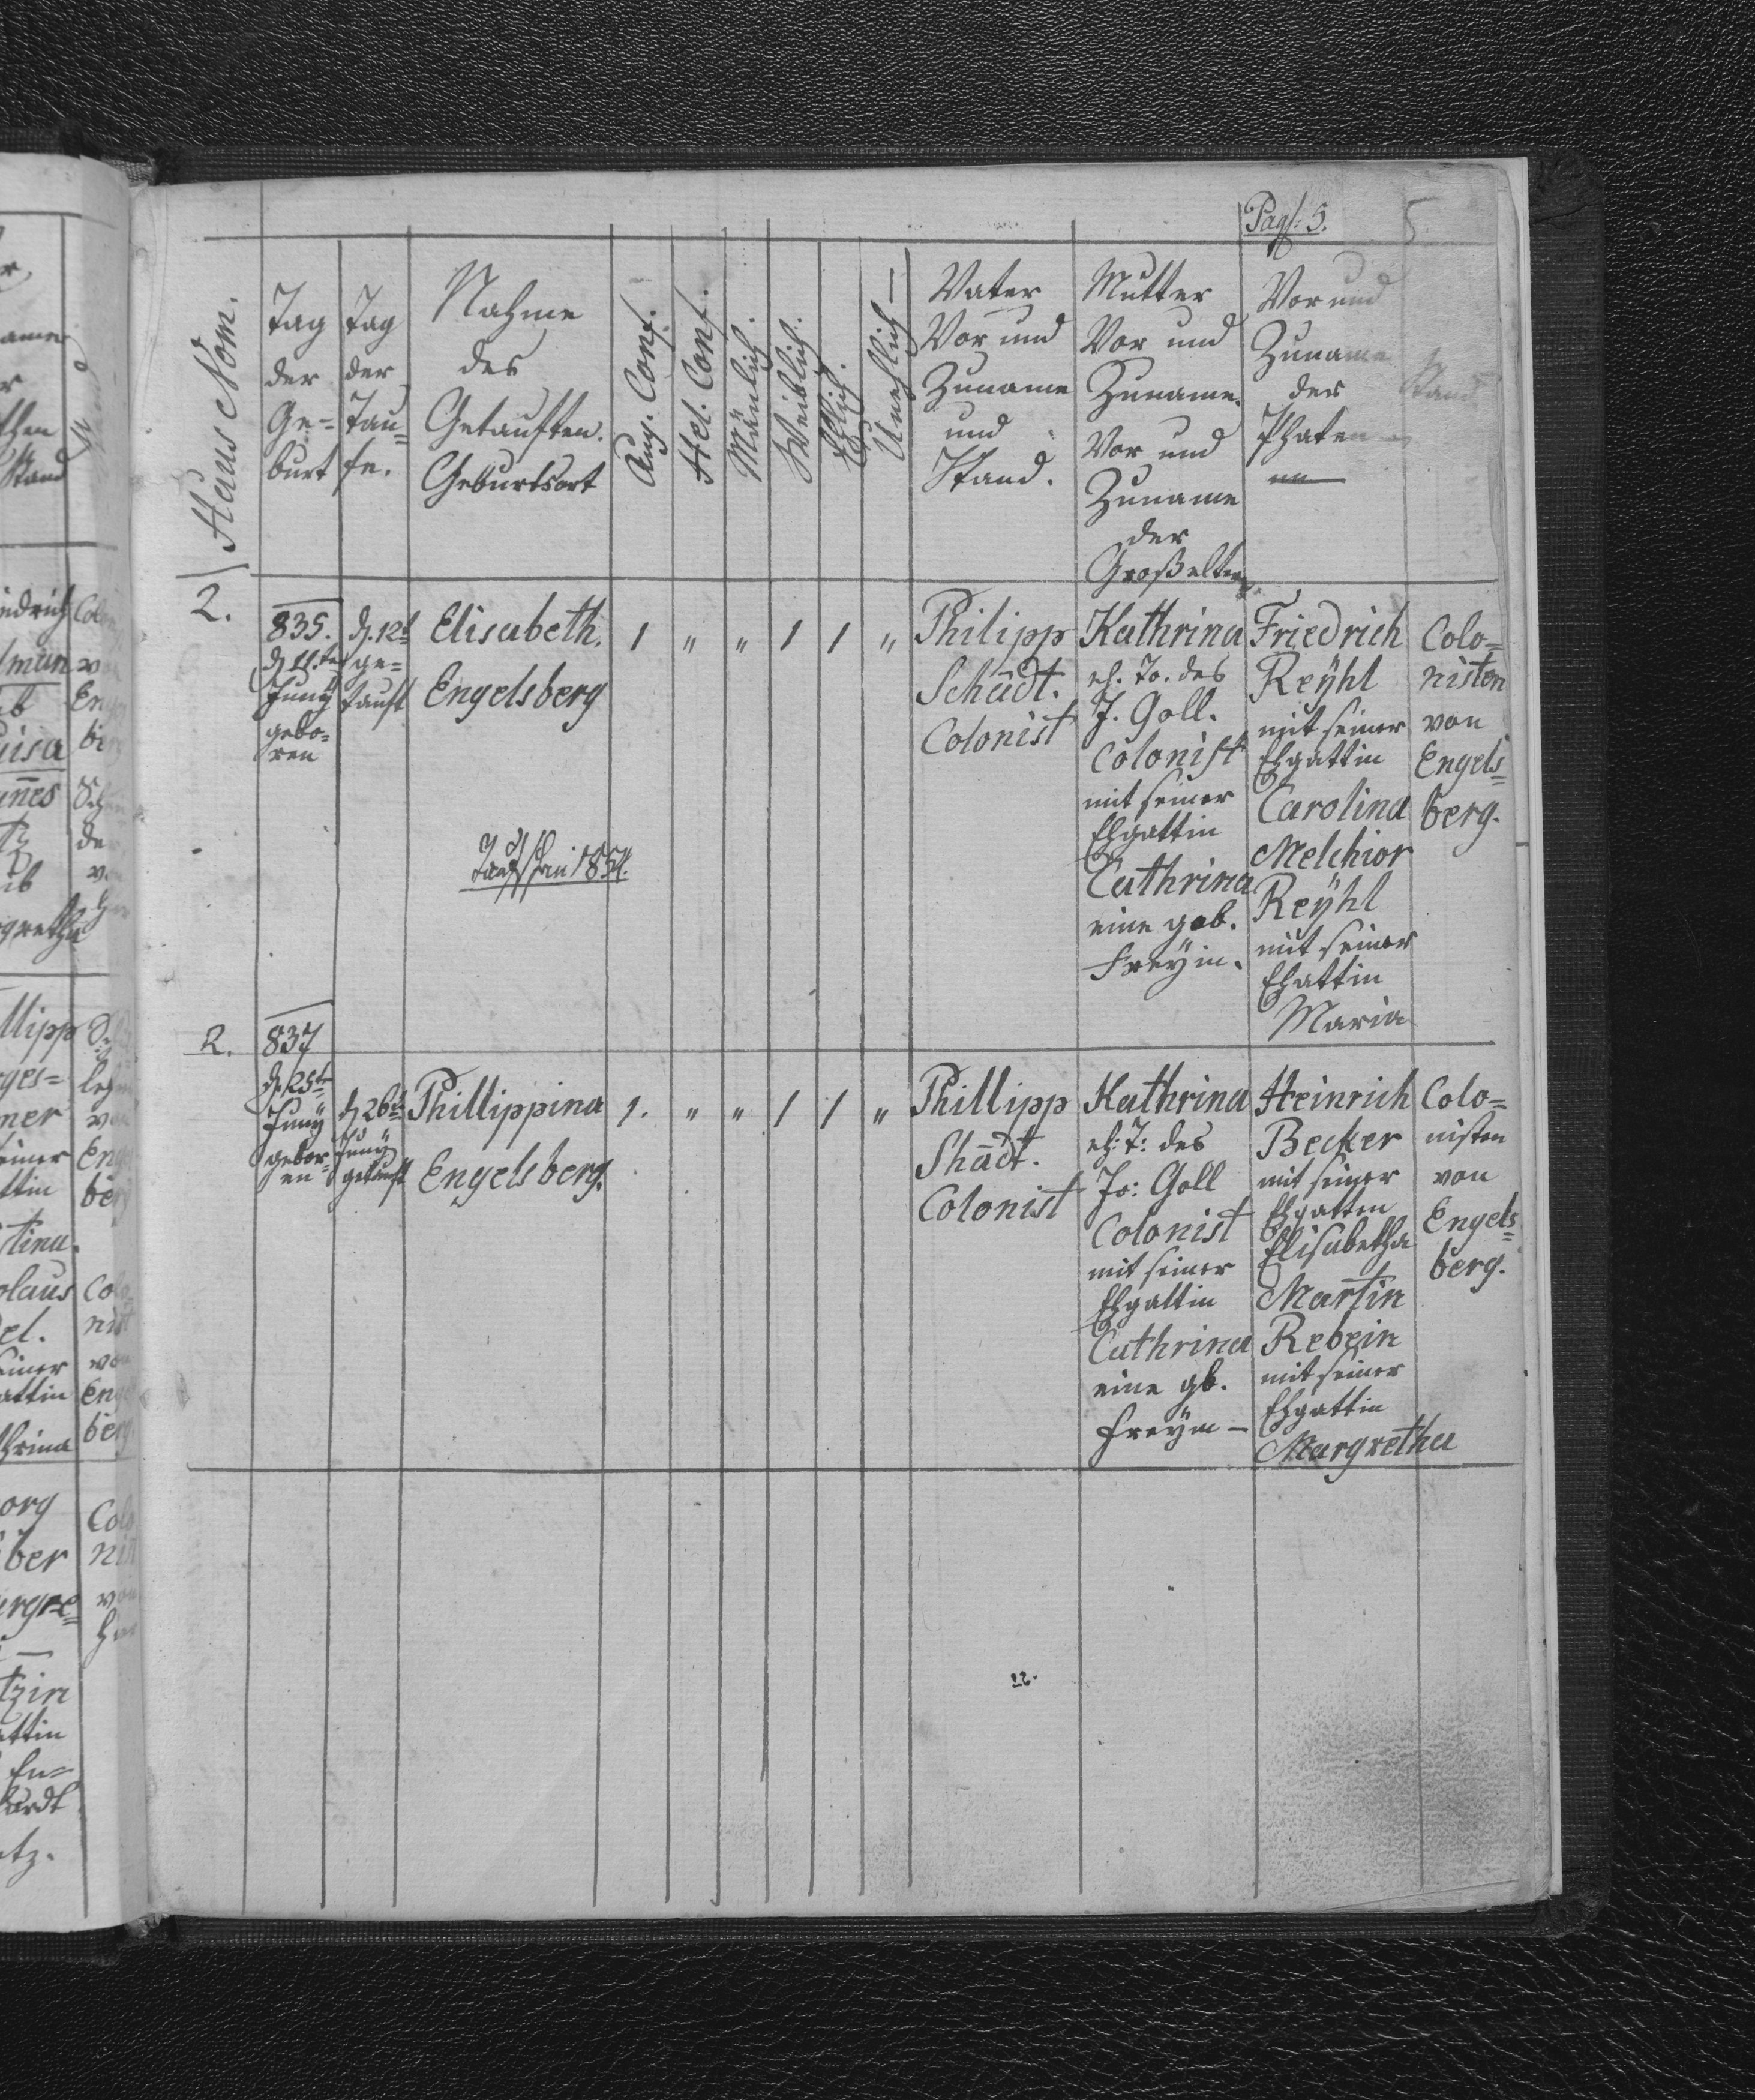 Pag: 5.
5
Haus Nom.
Tag
der
Ge=
burt
Tag
der
Tau=
fe.
Nahme
des
Getauften.
Geburtsort
Aug. Conf.
Hel. Conf.
Mänlich.
Weiblich.
Ehlich.
Unehlich —
Vater
Vor und
Zuname
und
Stand.
Mutter
Vor und
Zuname.
Vor und
Zuname
der
Großeltern
Vor und
Zuname
der
Phaten
Stand
2.
835.
d. 11.ten
Juny
gebo=
ren
d. 12t
ge=
tauft
Elisabeth.
Engelsberg
1 " " 1 1 "
Philipp
Schädt.
Colonist
Kathrina
eh. To. des
J. Goll.
Colonist
mit seiner
Ehgattin
Cathrina
eine geb.
Freÿin.
Friedrich
Reÿhl
mit seiner
Ehgattin
Carolina
Melchior
Reÿhl
mit seiner
Ehgattin
Maria
Colo=
nisten
von
Engels=
berg.
2.
837
d. 25t
Juny
gebor=
en
d 26t
Juny
getauft
Phillippina
Engelsberg.
1. " " 1 1 "
Phillipp
Shädt.
Colonist
Kathrina
eh: T: des
Jo: Goll
Colonist
mit seiner
Ehgattin
Cathrina
eine gb.
Freÿin —
Heinrich
Becker
mit seiner
Ehgattin
Elisabetha
Martin
Rebein
mit seiner
Ehgattin
Margretha
Colo=
nisten
von
Engels=
berg.